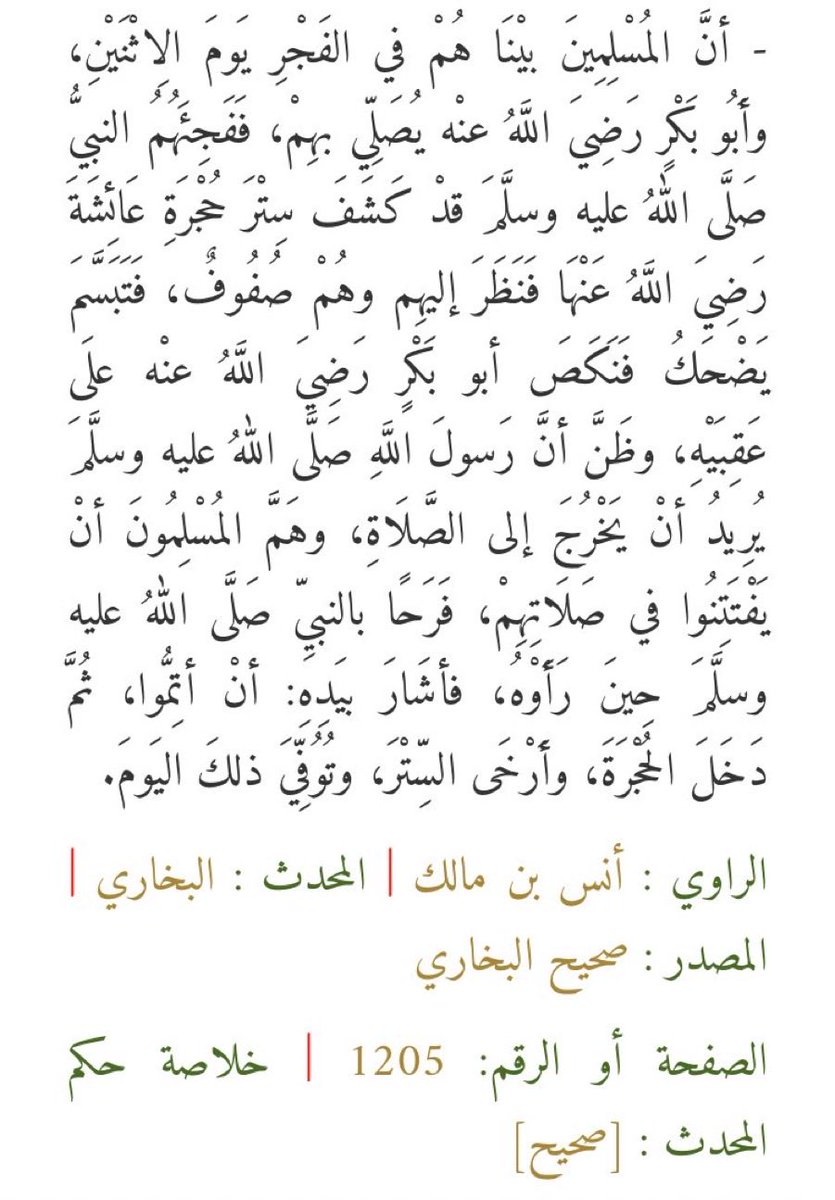 - أنَّ المُسْلِمِينَ بيْنَا هُمْ في الفَجْرِ يَومَ الِاثْنَيْنِ،
وأَبُو بَكْرٍ رَضِيَ اللَّهُ عنْه يُصَلِّي بهِمْ، فَفَجِئَهُمُ النبيُّ
صَلَّى اللهُ عليه وسلَّمَ قدْ كَشَفَ سِتْرَ حُجْرَةِ عَائِشَةَ
رَضِيَ اللَّهُ عَنْهَا فَنَظَرَ إليهِم وهُمْ صُفُوفٌ، فَتَبَسَّمَ
يَضْحَكُ فَنَكَصَ أبو بَكْرٍ رَضِيَ اللَّهُ عنْه علَى
عَقِبَيْهِ، وظَنَّ أنَّ رَسولَ اللَّهِ صَلَّى اللهُ عليه وسلَّمَ
يُرِيدُ أنْ يَخْرُجَ إلى الصَّلَاةِ، وهَمَّ المُسْلِمُونَ أنْ
يَفْتَتِنُوا في صَلَاتِهِمْ، فَرَحًا بالنبيِّ صَلَّى اللهُ عليه
وسلَّمَ حِينَ رَأَوْهُ، فأشَارَ بيَدِهِ: أنْ أتِمُّوا، ثُمَّ
دَخَلَ الحُجْرَةَ، وأَرْخَى السِّتْرَ، وتُوُفِّيَ ذلكَ اليَومَ.
الراوي : أنس بن مالك | المحدث : البخاري |
المصدر : صحيح البخاري
الصفحة أو الرقم: 1205 | خلاصة حكم
المحدث : [صحيح]